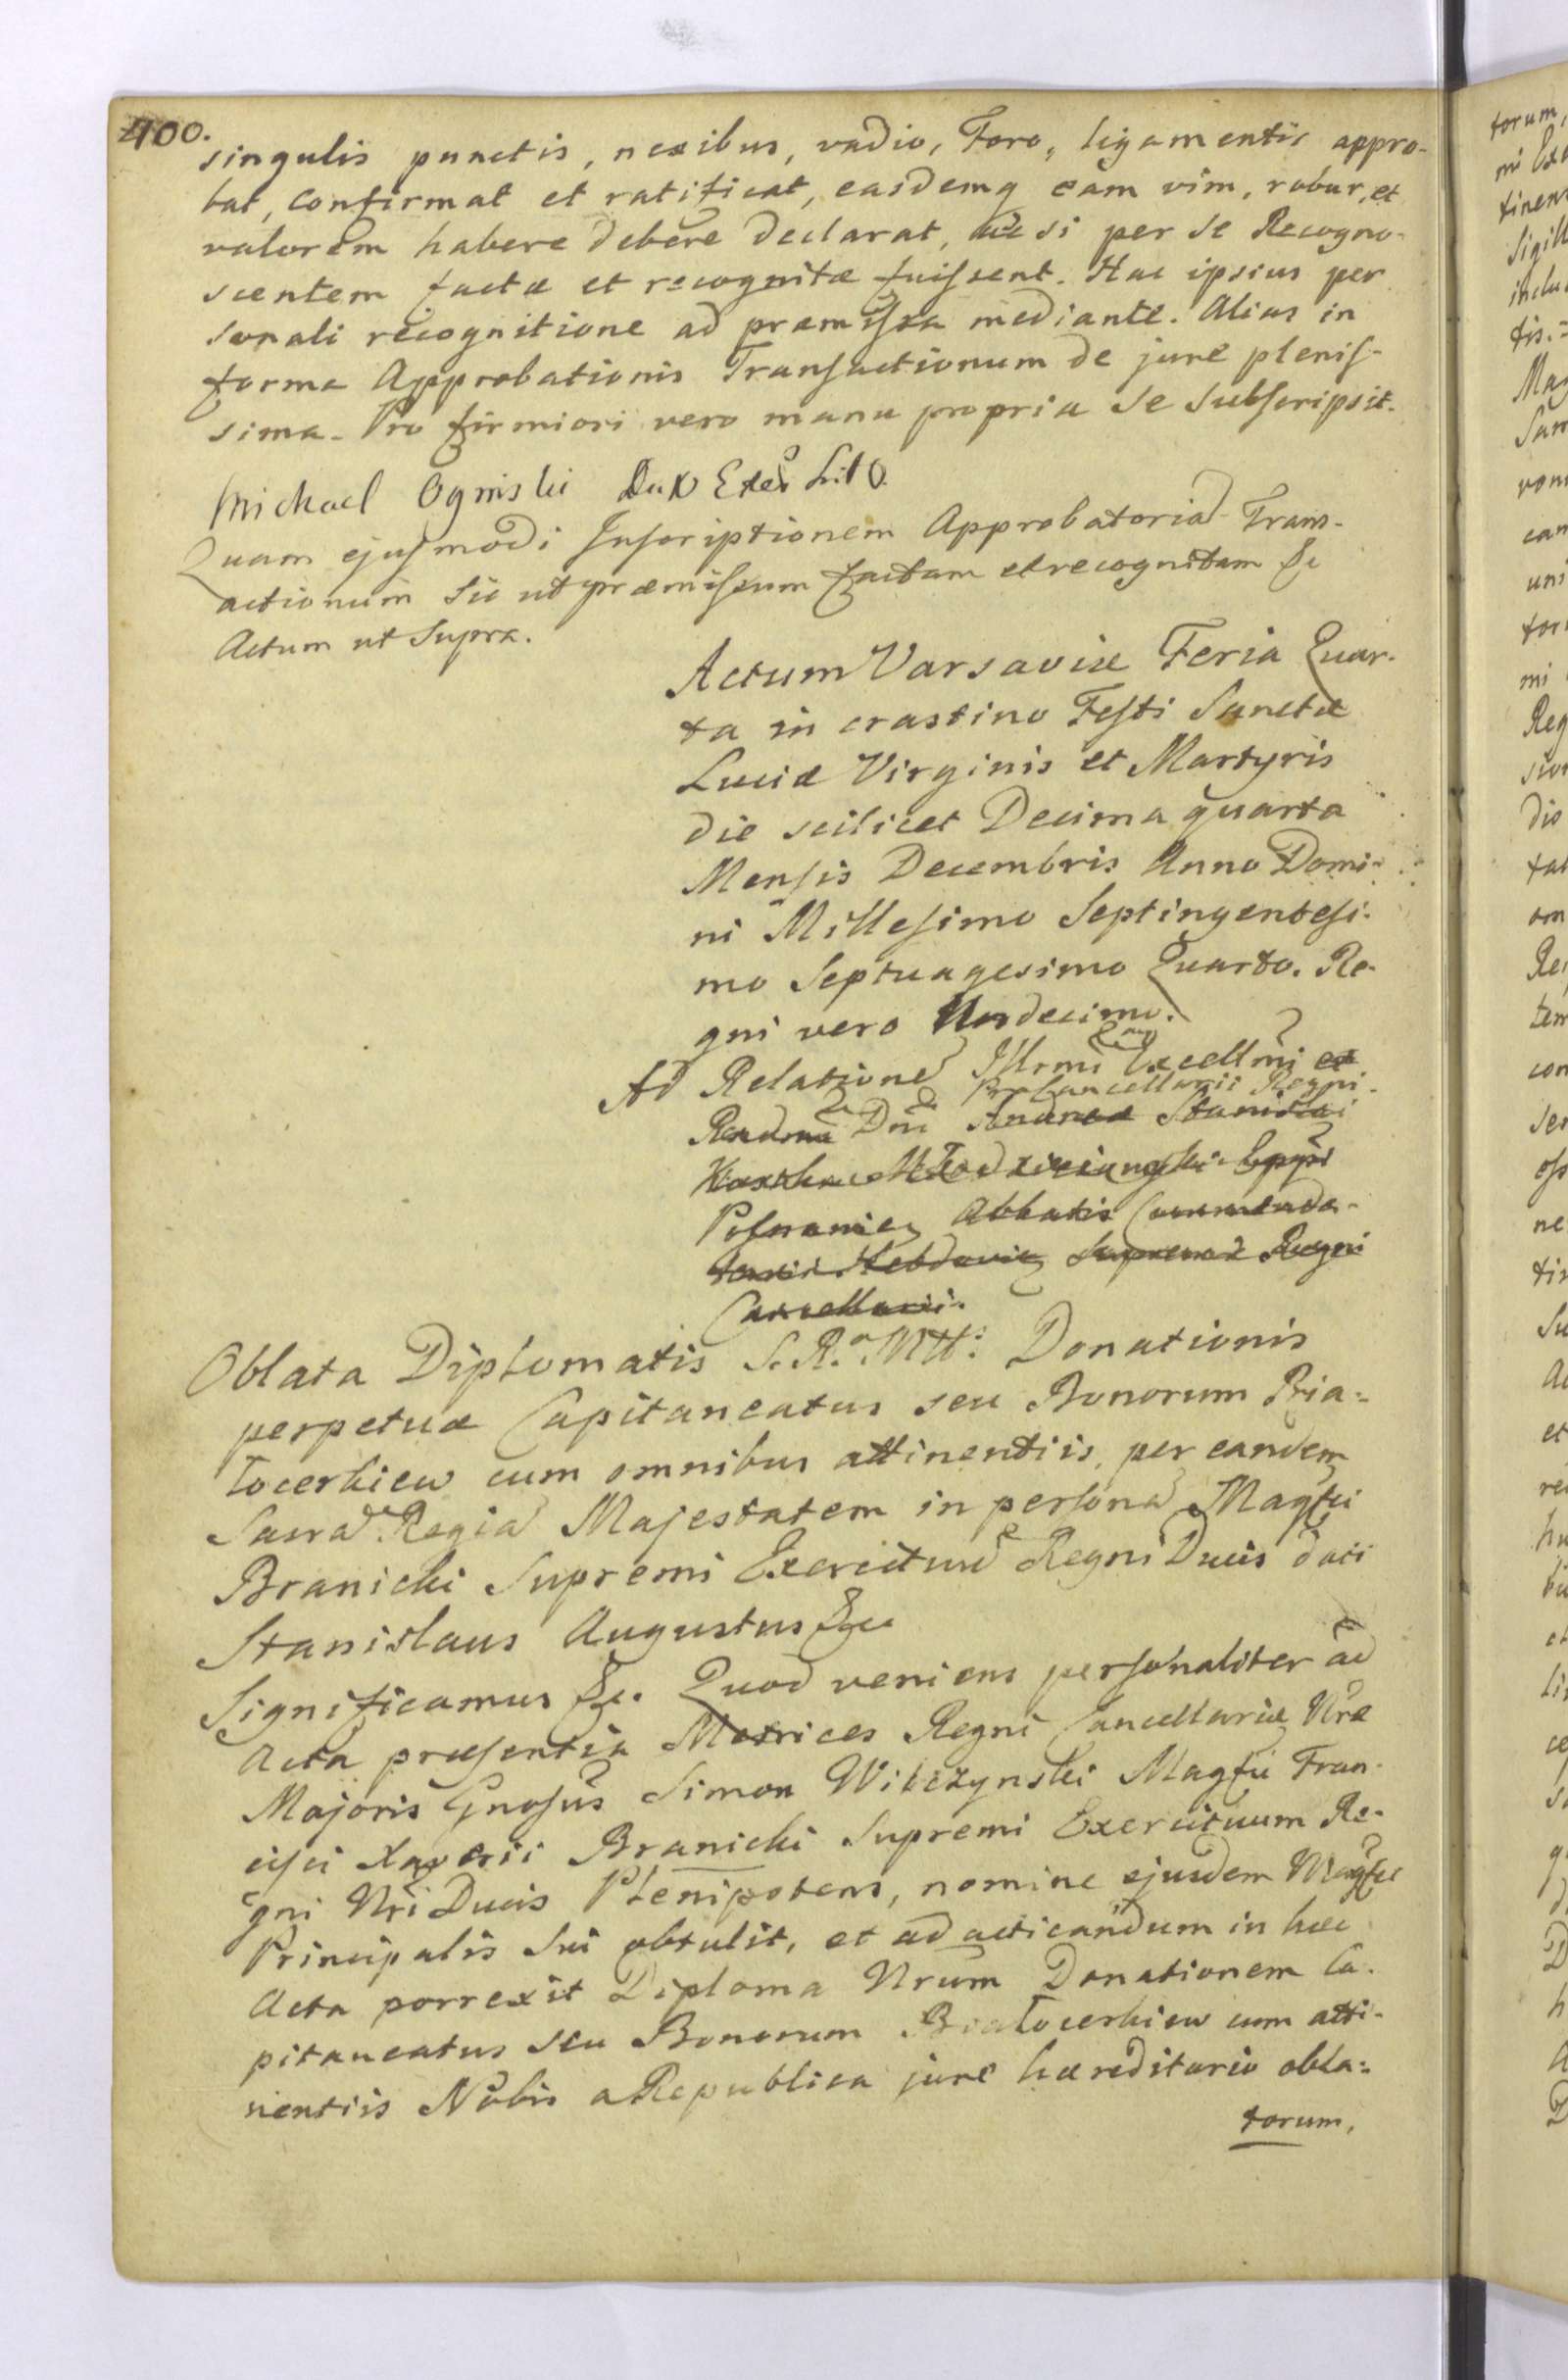 400.
singulis punctis, nexibus, vadio, Foro, ligamentis appro-
bat, confirmat et ratificat, easdemq eam vim, robur, et
valorem habere debere declarat, ac si per se Recogno-
scentem factæ et recognitæ fuiſsent. Hac ipsius per
sonali recognitione ad præmiſsa mediante. Alias in
forma Approbationis Tranſactionum de jure pleniſ-
sima. Pro firmiori vero manu propria se Subſcripsit.
Michael Oginski Dux Exer Lit
Quam ejuſmodi Inſcriptionem Approbatoria Trans-
actionum sic ut præmiſsum factam et recognitam &c
Actum ut Supra.
Actum Varsaviæ Feria Quar-
ta in crastino Feſti Sanctæ
Luciæ Virginis et Martyris
die scilicet Decima quarta
Menſis Decembris Anno Domi-
ni Milleſimo Septingenteſi-
mo Septuagesimo Quarto. Re-
gni vero Undecimo.
Ad Relatione Illrmi Excellmi et
Procancellarii Regni
Rndmi Dni Andreæ Stanislai
Kostka Młodzieiowſki Eppi
Poſnanien Abbatis Commenda-
tarii Hebdovien Supremi Regni
Cancellarii.
Oblata Diplomatis S. R. Mtt: Donationis
perpetuæ Capitaneatus seu Bonorum Bia=
łocerkiew cum omnibus attinentiis, per eandem
Sacra Regia Majestatem in perſona Magfci
Branicki Supremi Exercituu Regni Ducis dati
Stanislaus Augustus &c
Significamus &c. Quod veniens perſonaliter ad
Acta præſentia Metrices Regni Cancellariæ Nræ
Majoris Gnoſus Simon Wilczynski Magfci Fran-
ciſci Xaverii Branicki Supremi Exercituum Re-
gni Nri Ducis Plenipotens, nomine ejusdem Magfci
Principalis Sui obtulit, et ad acticandum in hæc
Acta porrexit Diploma Nrum Donationem Ca-
pitaneatus seu Bonorum Białocerkiew cum atti-
nentiis Nobis a Republica jure hæreditario obla=
torum,